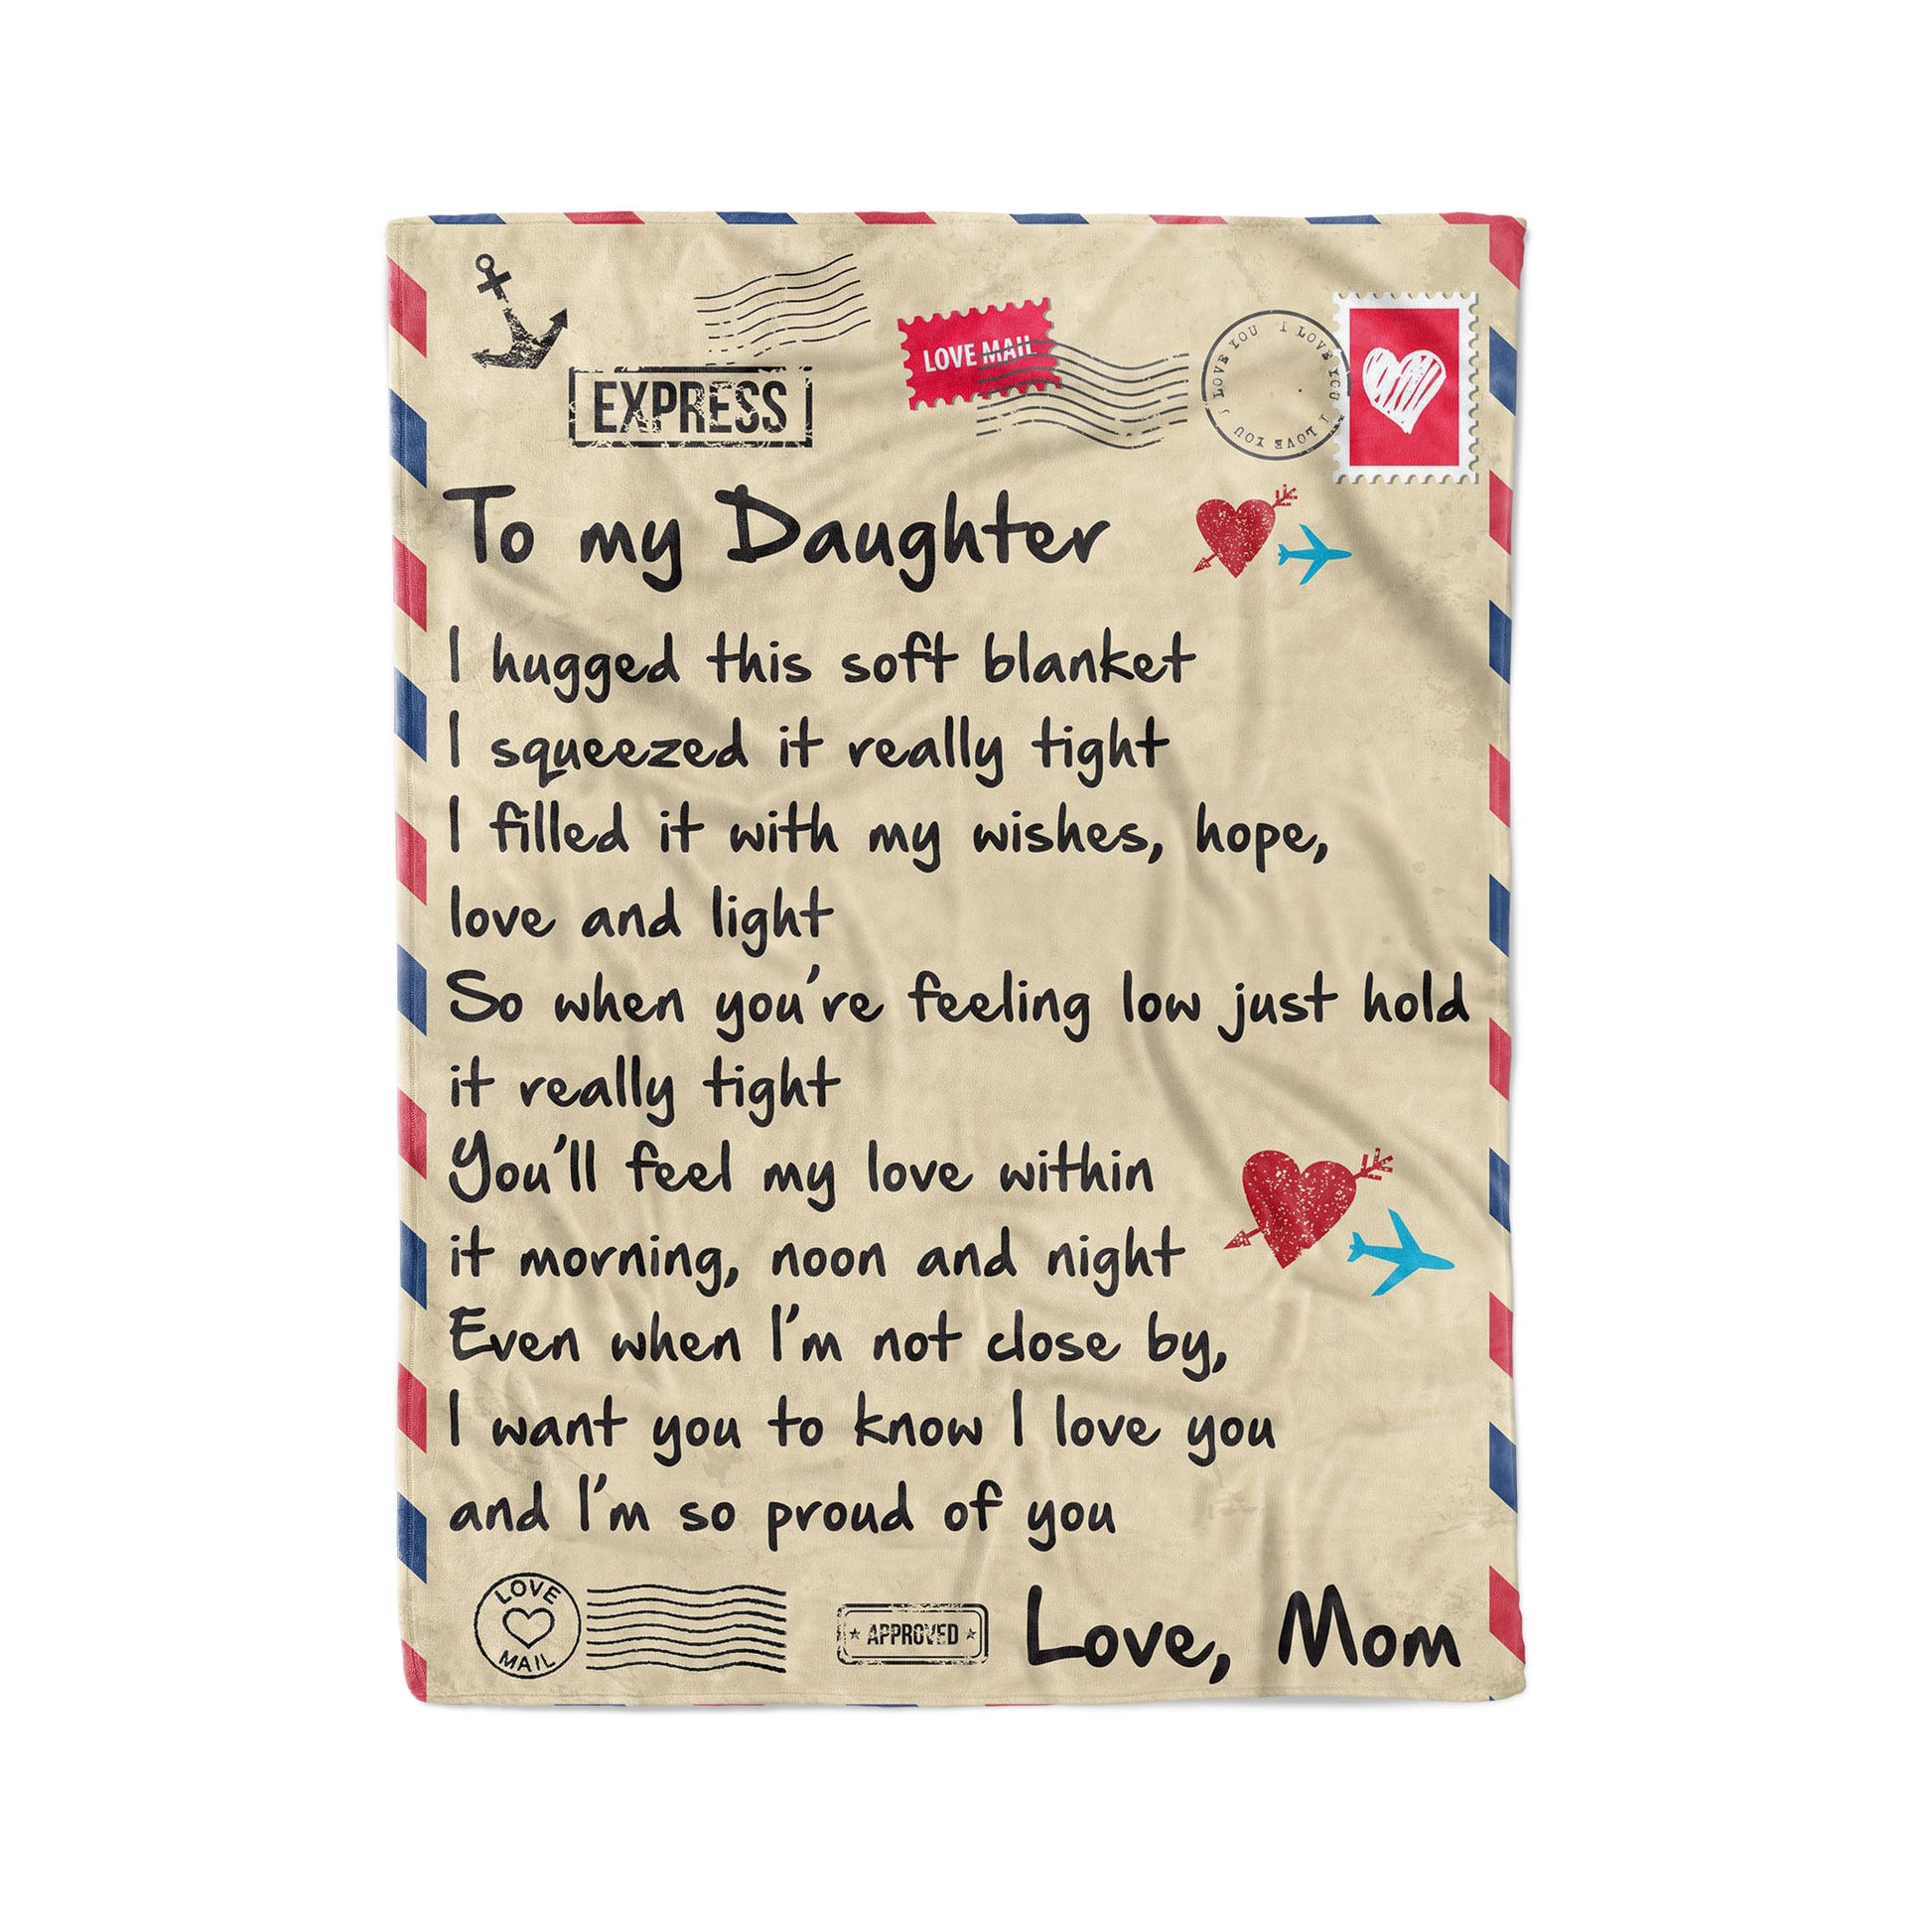 EXPRESS
LOVE MAIL
I LOVE YOU I LOVE YOU I LOVE YOU
To my Daughter
I hugged this soft blanket
I squeezed it really tight
I filled it with my wishes, hope,
love and light
So when you're feeling low just hold
it really tight
You'll feel my love within
it morning, noon and night
Even when I'm not close by,
I want you to know I love you
and I'm so proud of you
LOVE
MAIL
APPROVED
Love, Mom